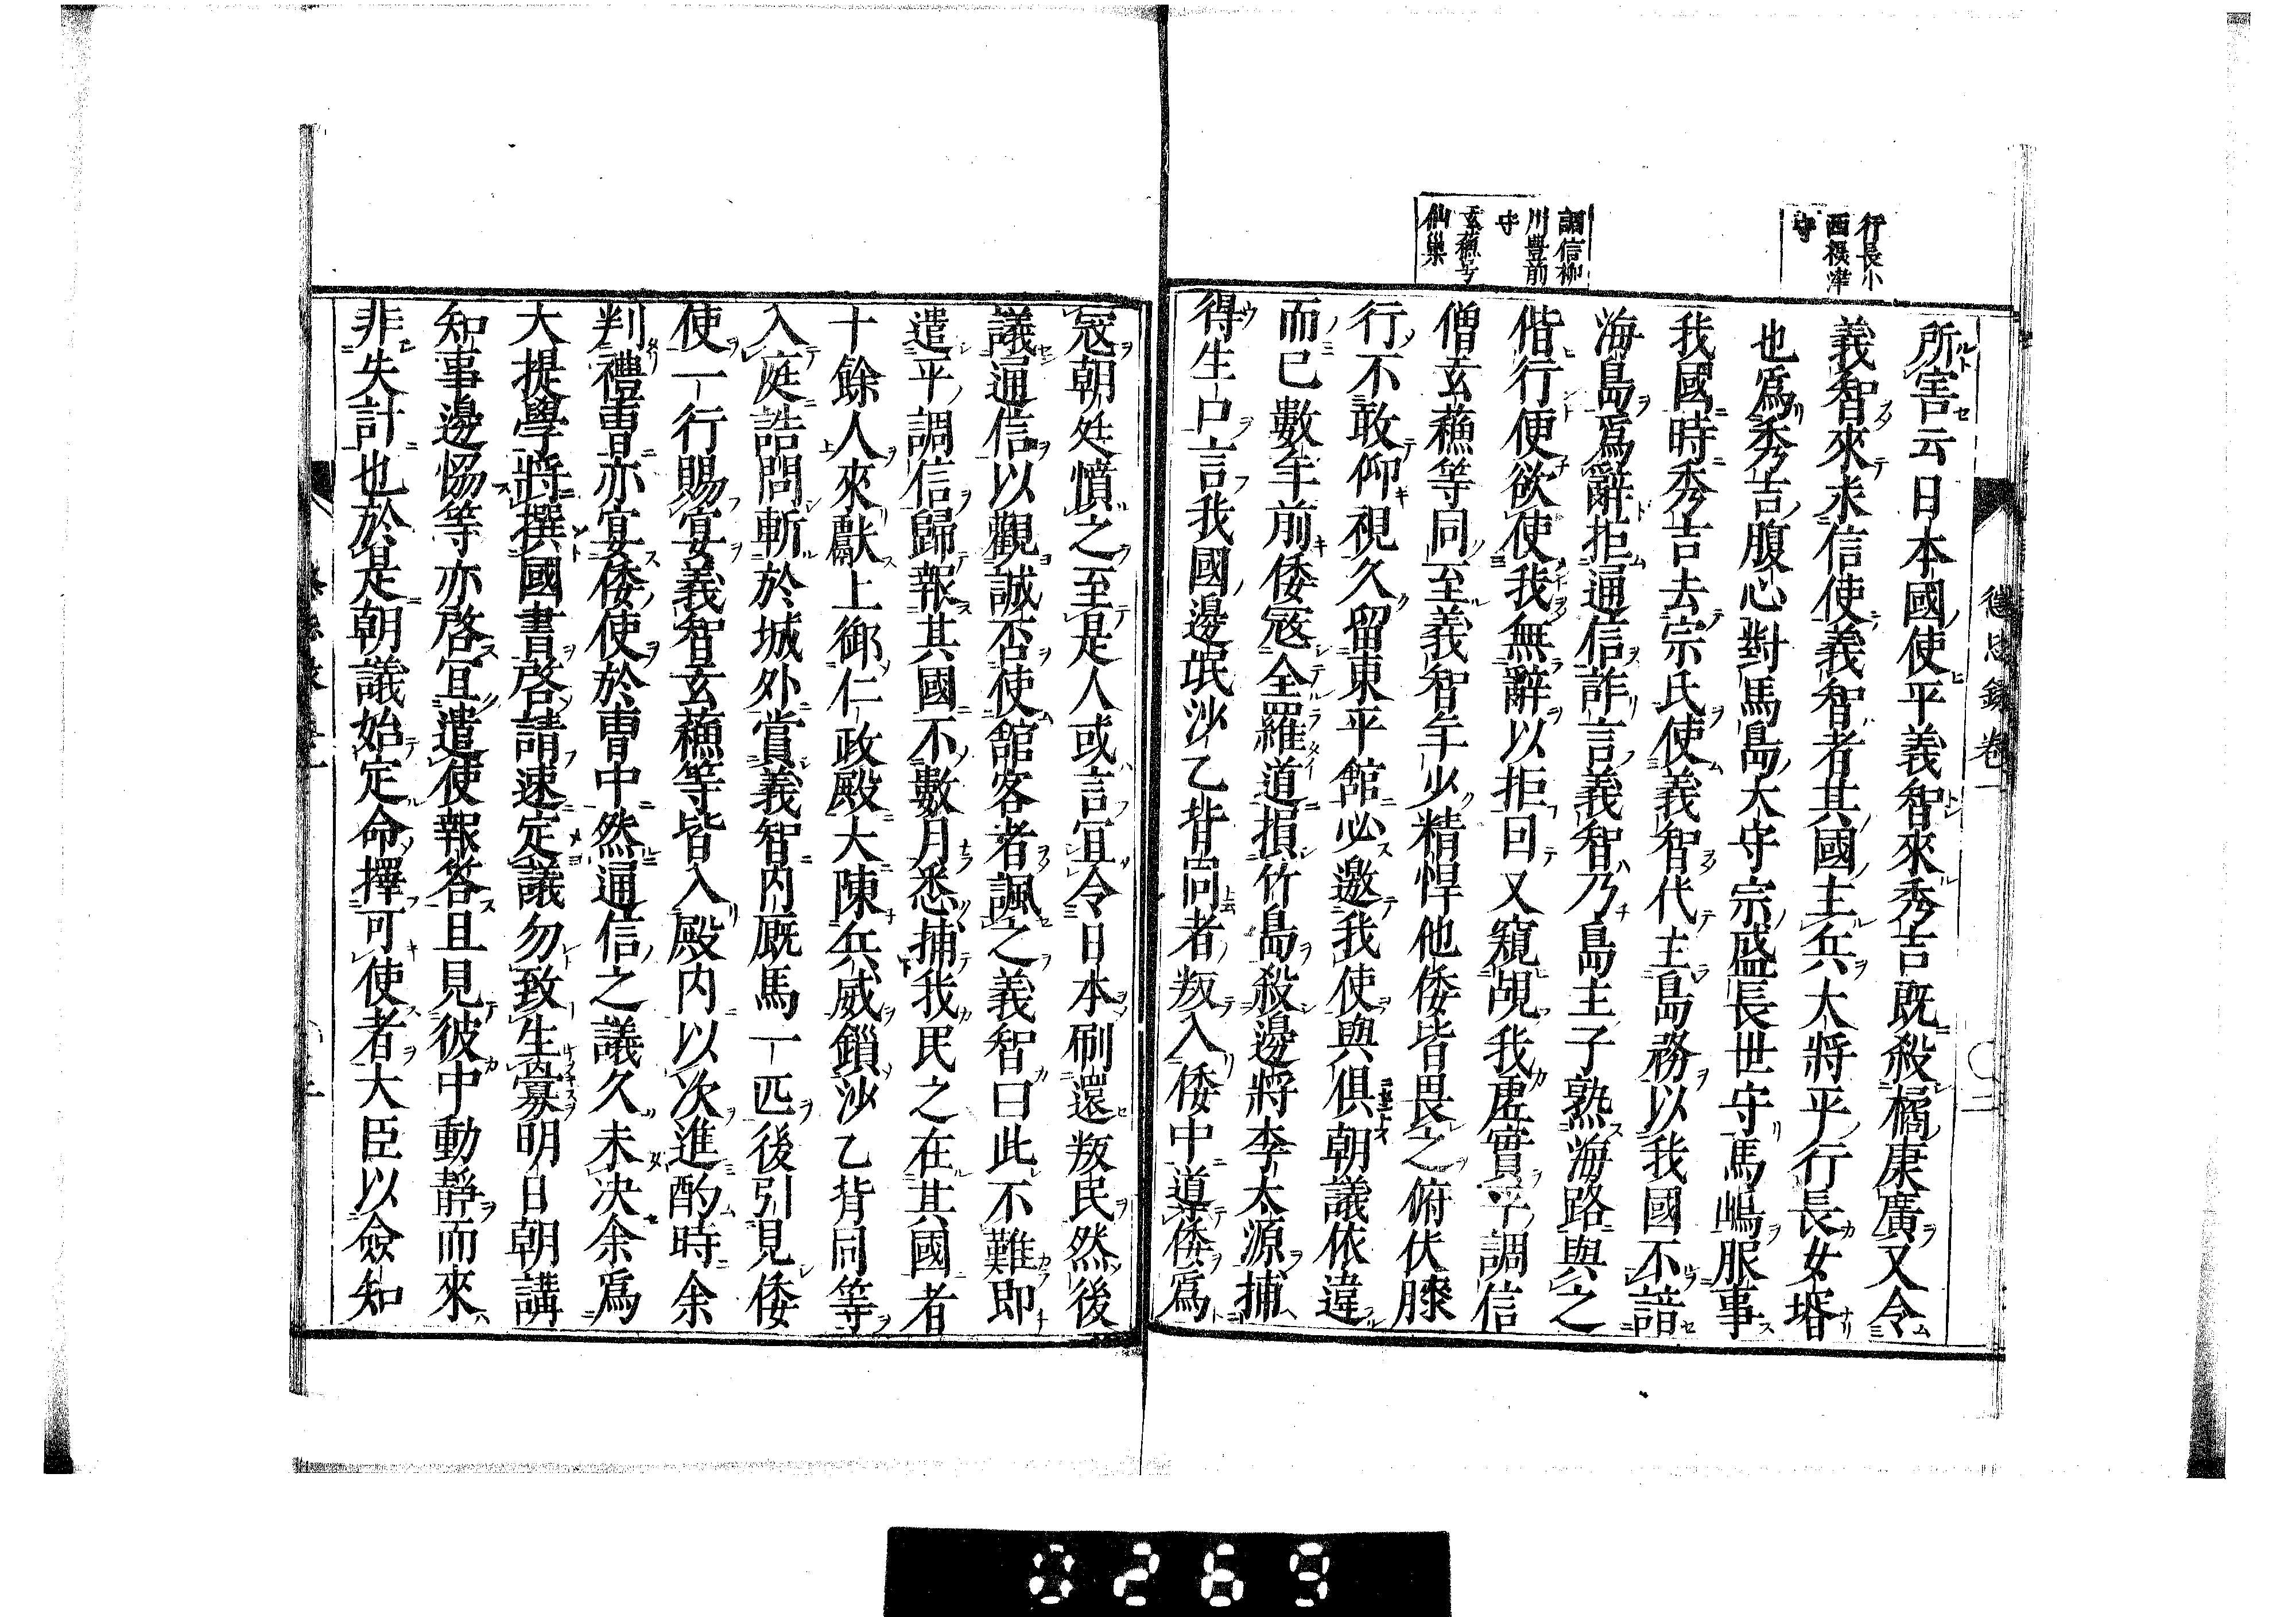 行長小
西攝津
守
調信柳
川豊前
守
玄蘓号
仙巢
懲毖錄 卷一 〇二
所害云日本國使平義智來秀吉既殺橘康廣又令
義智來求信使義智者其國主兵大將平行長女壻
也爲秀吉腹心對馬島太守宗盛長世守馬嶋服事
我國時秀吉去宗氏使義智代主島務以我國不諳
海島爲辭拒通信詐言義智乃島主子熟海路與之
偕行便欲使我無辭以拒回又窺覘我虛實平調信
僧玄蘓等同至義智年少精悍他倭皆畏之俯伏膝
行不敢仰視久留東平館必邀我使與俱朝議依違
而已數年前倭寇全羅道損竹島殺邊將李太源捕
得生口言我國邊氓沙乙背同者叛入倭中導倭爲
寇朝廷憤之至是人或言宜令日本刷還叛民然後
議通信以觀誠否使館客者諷之義智曰此不難即
遣平調信歸報其國不數月悉捕我民之在其國者
十餘人來獻上御仁政殿大陳兵威鎖沙乙背同等
入庭詰問斬於城外賞義智内厩馬一匹後引見倭
使一行賜宴義智玄蘓等皆入殿内以次進酌時余
判禮曹亦宴倭使於曹中然通信之議久未決余爲
大提學將撰國書啓請速定議勿致生釁明日朝講
知事邊恊等亦啓宜遣使報答且見彼中動靜而來
非失計也於是朝議始定命擇可使者大臣以僉知
0269